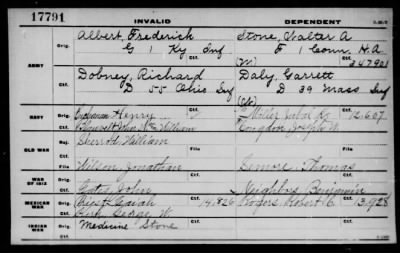 17791
INVALID DEPENDENT
ARMY
Orig. Albert, Frederick Orig. Stone, Walter A
G 1 Ky Inf F 1 Conn. H.A.
Ctf. (W.) Ctf. 347901
Dobney, Richard Daly, Garrett
D 55 Ohio Inf D 39 Mass Inf
NAVY
Orig. Henry Ctf. Orig. Ctf. 12607
William Joseph W.
OLD WAR
Orig. Sherrod William
File File
WAR OF 1812
Orig. Wilson Jonathan Orig. Thomas
Ctf. Ctf.
Gates John Neighbors Benjamin
MEXICAN WAR
Orig. Isaiah Ctf. 14,826 Orig. Rogers, Robert C. Ctf. 13,928
George W.
INDIAN WAR
Orig. Medicine Stone Ctf. Orig. Ctf.